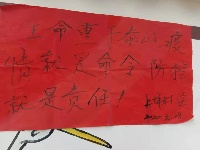 生命重于泰山 疫
情就是命令 防控
就是责任！